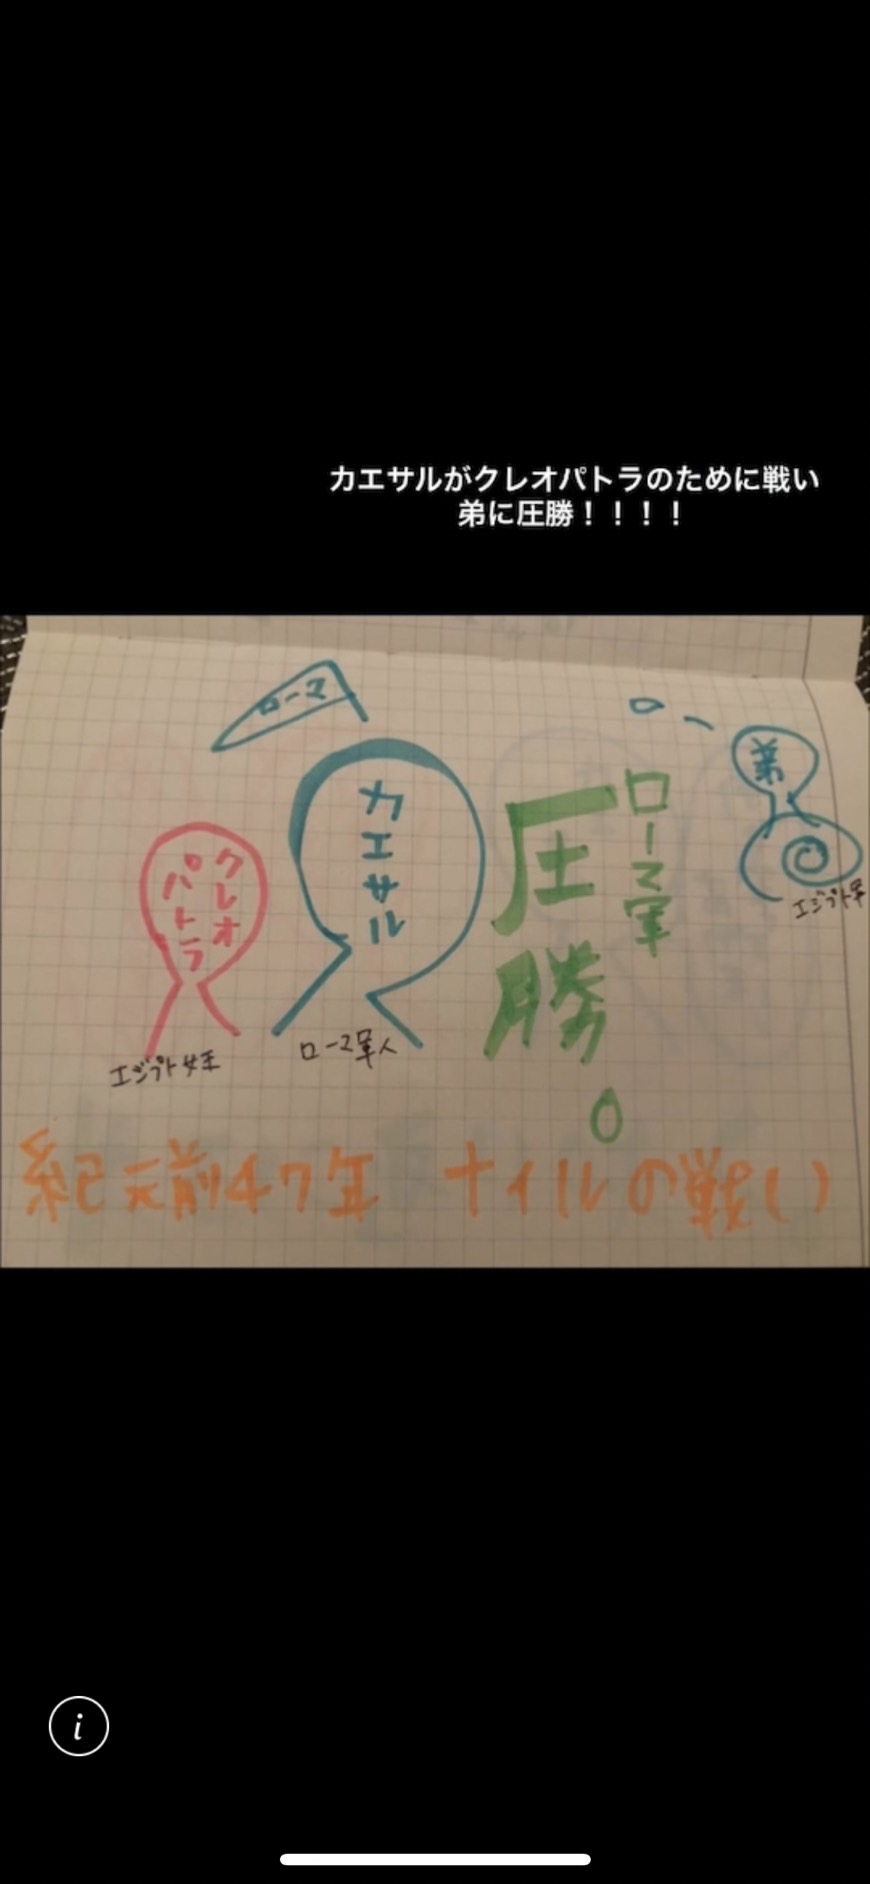 カエサルがクレオパトラのために戦い
弟に圧勝！！！！
ローマ
クレオ
パトラ
エジプト女王
カエサル
ローマ軍人
ローマ軍
圧勝。
弟
エジプト軍
紀元前47年 ナイルの戦い
i